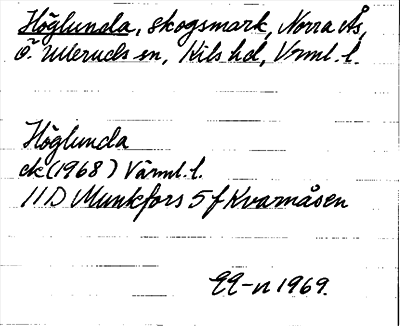 Höglunda, skogsmark, Norra Ås,
Ö. Ulleruds sn, Kils hd, Värml. l.
Höglunda
ek (1968) Värml. l.
11D Munkfors 5 f Kvarnåsen
1969.